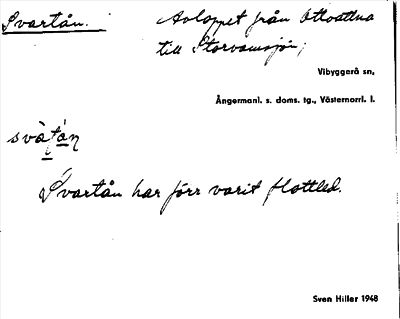 Svartån.
Avloppet från Ottvattna
till Storvamsjön;
Vibyggerå sn,
Ångermanl. s. doms. tg., Västernorrl. l.
svàtán
Svartån har förr varit flottled.
Sven Hiller 1948